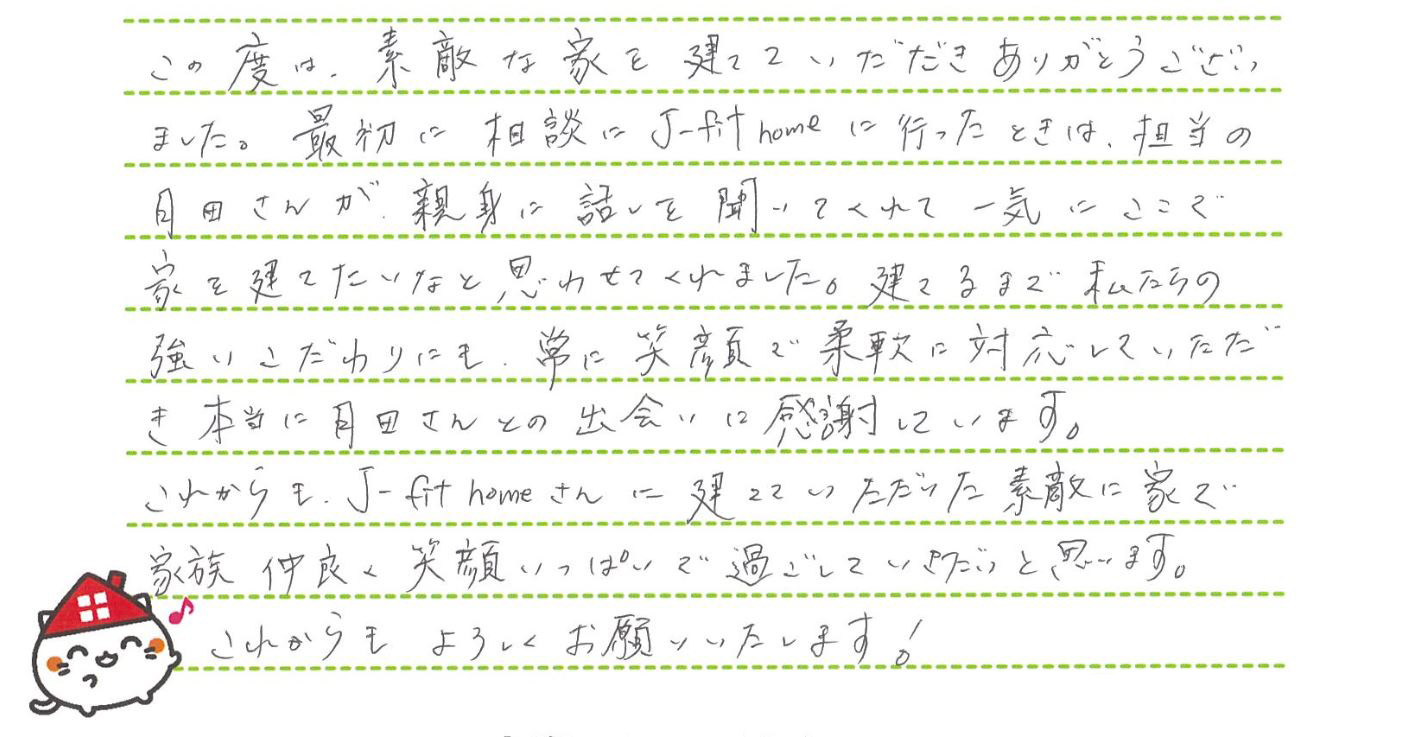 この度は、素敵な家を建てていただだきありがとうござい
ました。最初に相談にJ-fit homeに行ったときは、担当の
月田さんが、親身に話しを聞いてくれて一気にここで
家を建てたいなと思わせてくれました。建てるまで私たちの
強いこだわりにも、常に笑顔で柔軟に対応していただ
き本当に月田さんとの出会いに感謝しています。
これからも、J-fit homeさんに建てていただいた素敵に家で
家族仲良く笑顔いっぱいで過ごしていきたいと思います。
これからもよろしくお願いいたします!